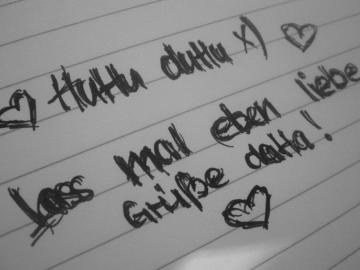 Huhu duhu x)
Lass mal eben liebe
Grüße daha!